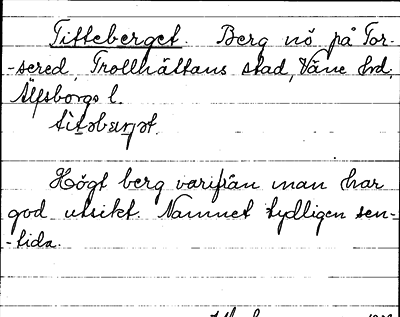 Titteberget. Berg nö på Tor-
-sered, Trollhättans stad, Väne hd,
Älfsborgs l.
Högt berg varifrån man har
god utsikt. Namnet tydligen sen-
-tida.